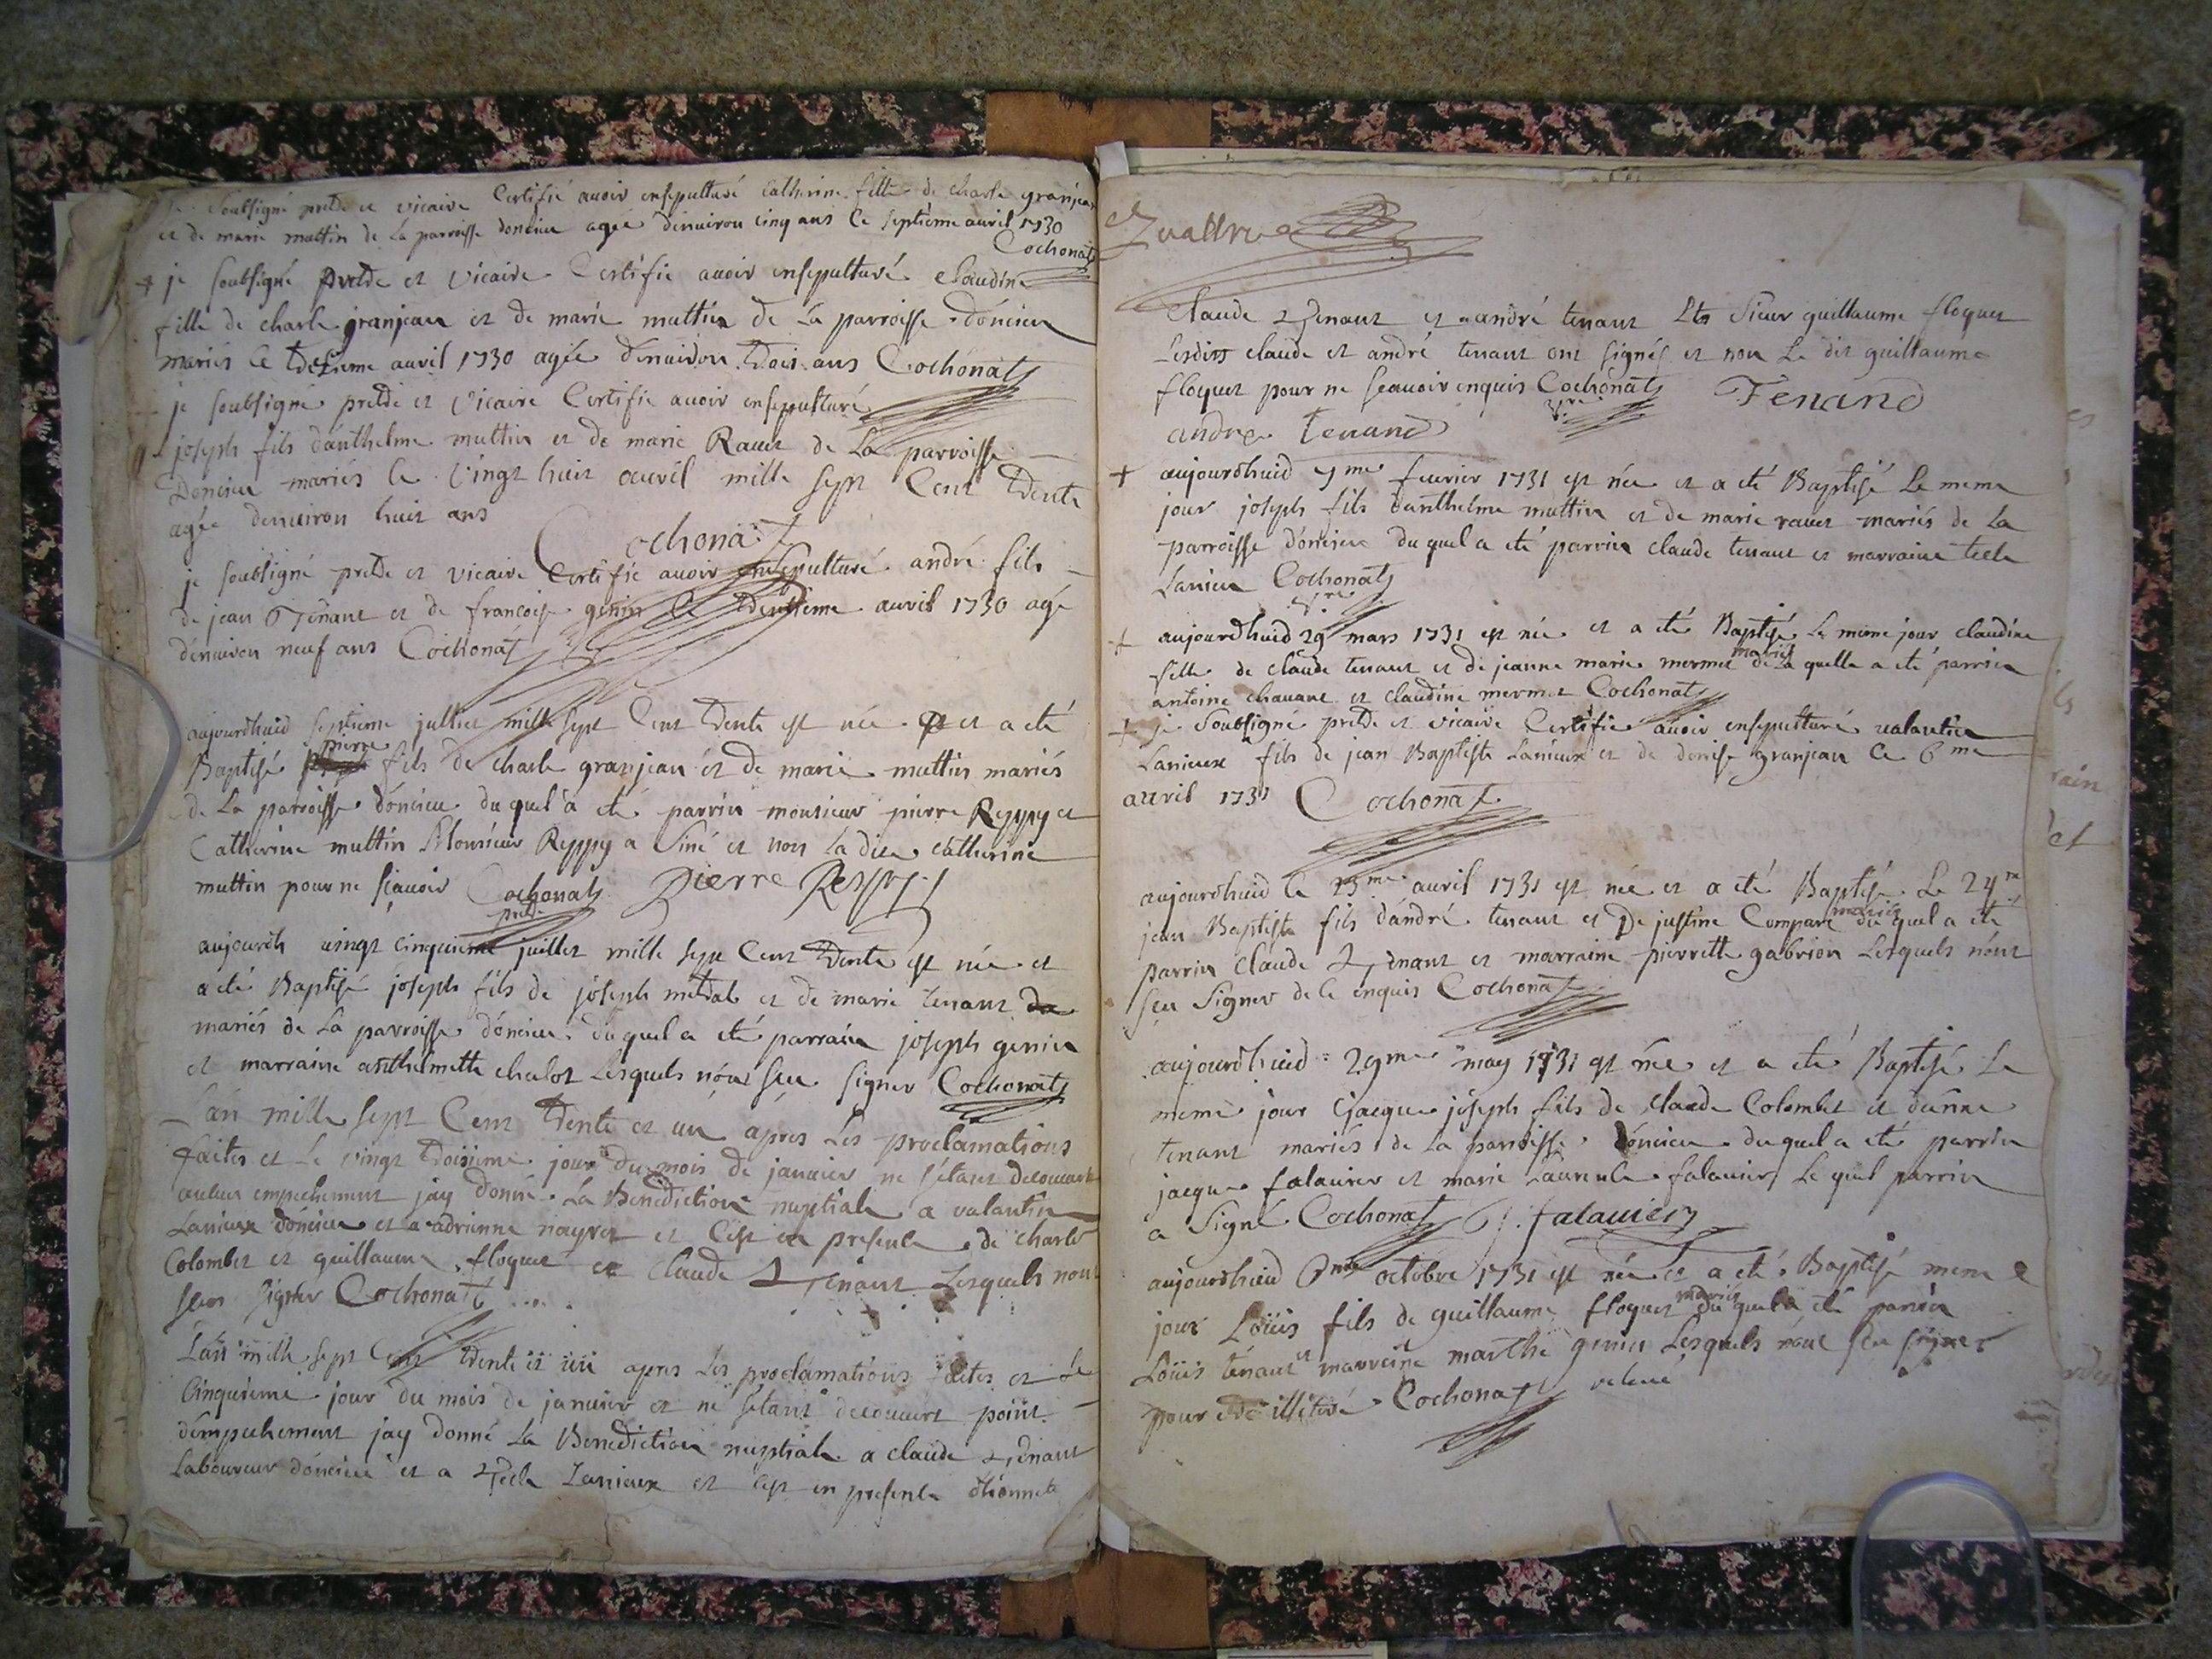 je soubsigné pretre et vicaire Certifie avoir ensepulturé Catherine fille de charle granjean
et de marie muttin de La parroisse doncieu agee denuiron cinq ans le septieme auril 1730
Cochonat
+ je soubsigné pretre et vicaire Certifie auoir ensepulturé claudine
fille de charle granjean et de marie muttin de La parroisse doncieu
mariés le treizieme auril 1730 agée denuiron trois ans Cochonat
je soubsigné pretre et vicaire Certifie auoir ensepulturé
joseph fils danthelme muttin et de marie Rauet de La parroisse
Doncieu mariés le vingt huit auvril mille sept Cent trente
agée denuiron huit ans
Cochonat
je soubsigné pretre et vicaire Certifie auoir ensepulturé andré fils
de jean Tenant et de francoise genin le trentieme auril 1730 agé
denuiron neuf ans Cochonat
aujourdhuid septieme julliet mille sept Cent trente est née et a eté
Baptisé pierre fils de charle granjean et de marie muttin mariés
de La parroisse doncieu du quel a eté parrin monsieur pierre Reppy et
Catherine muttin Monsieur Reppy a siné et non La dite catherine
muttin pour ne sçauoir Cochonat pretre Pierre Reppy
aujourdh vingt cinquieme juillet mille sept Cent trente est née et
a eté Baptisé joseph fils de joseph metral et de marie tenant
mariés de La parroisse doncieu du quel a eté parrain joseph genin
et marraine anthelmette chulot Lesquels nont sceu signer Cochonat
Lan mille sept Cent trente et un apres Les proclamations
faites et Le vingt troisieme jour du mois de januier ne sétant decouuert
aucun empechement jay donné La Benediction nuptiale a valantin
Lanieux doncieu et a adrienne nayret et C'est en presence de charle
Colombet et guillaume floquet et claude Tenant Lesquels nont
sceu signer Cochonat
Lan mille sept Cent trente et un apres Les proclamations faites et Le
Cinquieme jour du mois de januier et ne sétant decouuert point
dempechement jay donné La Benediction nuptiale a claude Tenant
Laboureur doncieu et a Tecle Lanieux et c'est en presence dhonnete
claude Tenant et andré tenant sieur guillaume floquet
Lesdits claude et andré tenant ont signés et non Le dit guillaume
floquet pour ne sçauoir enquis Cochonat vre Tenand
andre tenand
+ aujourdhuid 7me feurier 1731 est née et a eté Baptisé Le meme
jour joseph fils danthelme muttin et de marie rauet mariés de La
parroisse doncieu du quel a eté parrin claude tenant et marraine tecle
Lanieu Cochonat vre
+ aujourdhuid 29 mars 1731 est née et a eté Baptisé Le meme jour claudine
fille de claude tenant et de jeanne marie mermet mariés de La quelle a eté parrin
antoine chauant et claudine mermet Cochonat
+ je soubsigné pretre et vicaire Certifie auoir ensepulturé valantin
Lanieux fils de jean Baptiste Lanieux et de denise granjean le 6me
auril 1731 Cochonat
aujourdhuid le 23me auril 1731 est née et a eté Baptisé Le 24me
jean Baptiste fils dandré tenant et De justine Compare mariés du quel a eté
parrin claude Tenant et marraine pierrette gabrion Lesquels nont
sceu signer de ce enquis Cochonat
aujourdhuid 29me may 1731 est née et a eté Baptisé Le
meme jour jacque joseph fils de claude Colombet et danne
tenant mariés de La parroisse doncieu du quel a eté parrin
jacque falauier et marie falauier Le quel parrin
a signé Cochonat J. falauier
aujourdhuid octobre 1731 est née et a eté Baptisé meme
jour Loüis fils de guillaume floquet mariés du quel a eté parrin
Loüis tenant et marreine marthe genin Lesquels nont sceu signer
pour etre illiteré Cochonat